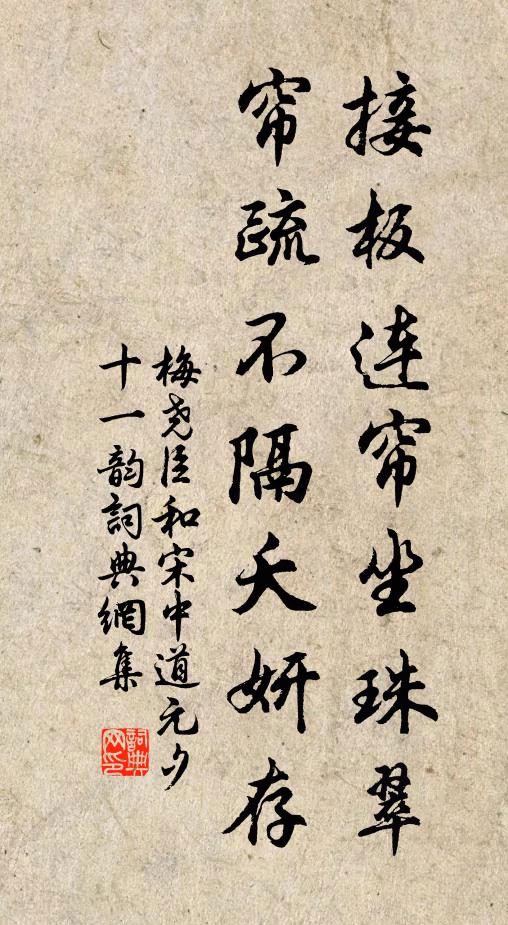 接板连帘坐珠翠
帘疏不隔夭妍存
梅尧臣和宋中道元夕
十一韵詞典網集
詞典
网印